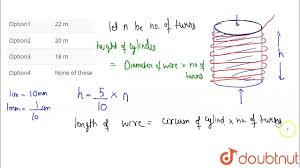 Option1 22 m
Option2 20 m
Option3 18 m
Option4 None of these
let n be no. of turns
height of cylinder
= Diameter of wire x no. of turns
1cm = 10mm
1mm = 1/10 cm
h = 5/10 x n
h
length of wire = circum of cylind x no. of turns
doubtnut